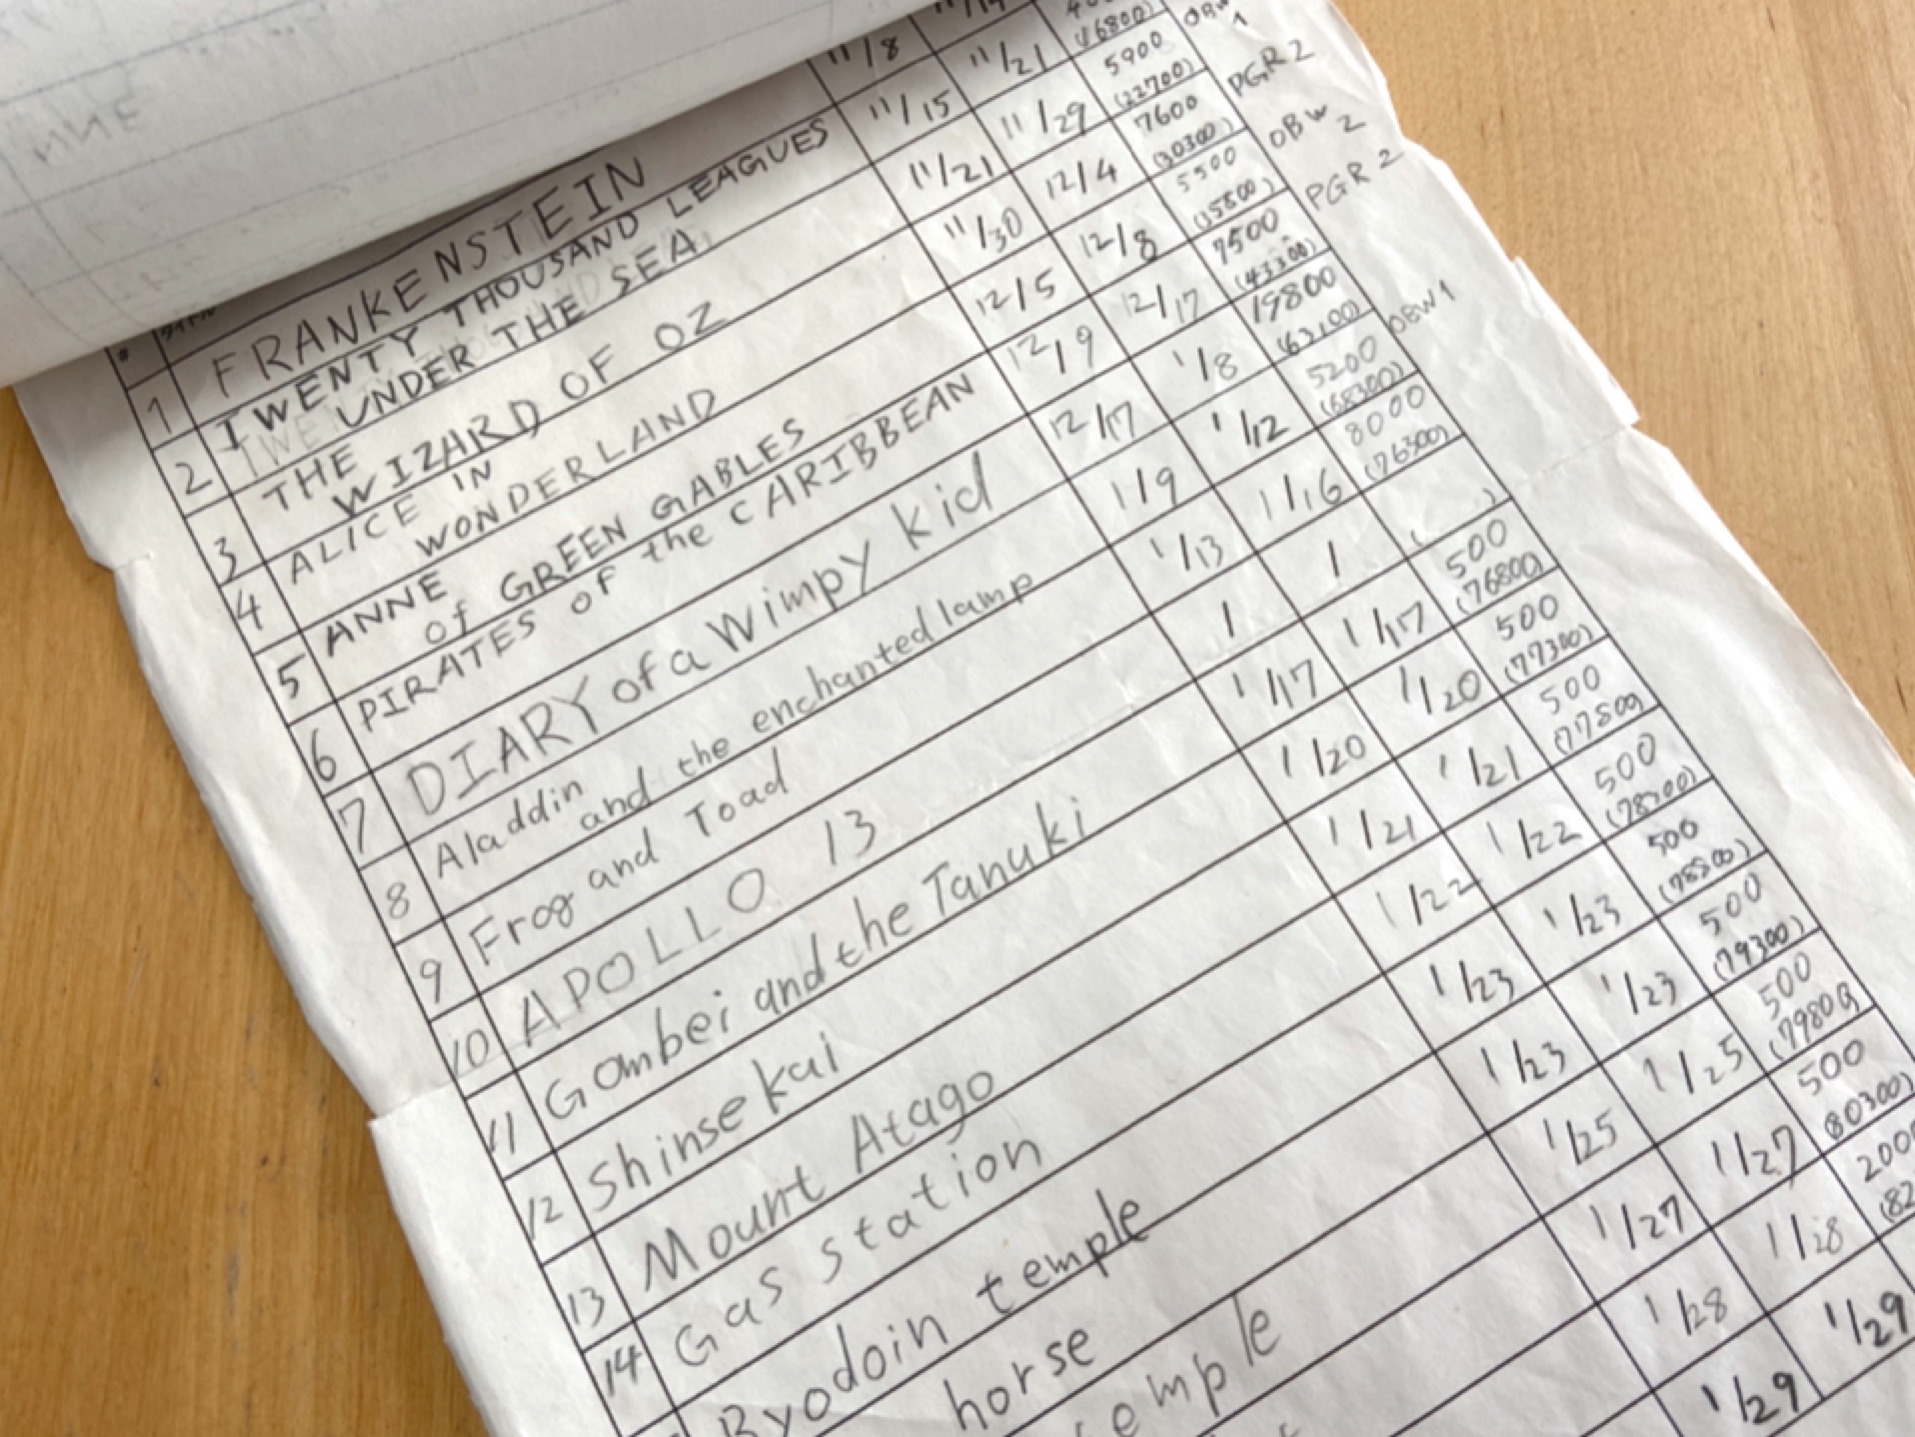 11/8 11/21 (16800) OBW 1
5900 (22700) PGR 2
1 FRANKENSTEIN 11/15 11/29 7600 (30300) OBW 2
2 TWENTY THOUSAND LEAGUES
UNDER THE SEA 11/21 12/4 5500 (35800) PGR 2
3 THE
WIZARD OF OZ 11/30 12/8 7500 (43300)
4 ALICE IN
WONDERLAND 12/5 12/17 19800 (63100)
5 ANNE
of GREEN GABLES 12/9 1/8 5200 (68300) OBW1
6 PIRATES OF the CARIBBEAN 12/17 1/12 8000 (76300)
7 DIARY of a Wimpy kid 1/9 1/16 ( )
8 Aladdin
and the enchanted lamp 1/13 / 500 (76800)
9 Frog and Toad / 1/17 500 (77300)
10 APOLLO 13 1/17 1/20 500 (77800)
11 Gombei and the Tanuki 1/20 1/21 500
12 Shinsekai 1/21 1/22 500 (78800)
13 Mount Atago 1/22 1/23 500 (79300)
14 Gas station 1/23 1/23 500 (79800)
Byodoin temple 1/23 1/25 500 80300)
horse 1/25 1/27
emple 1/27 1/28
1/28 1/29
1/29